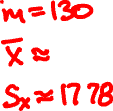 m=130
x̄≈
Sx≈1778